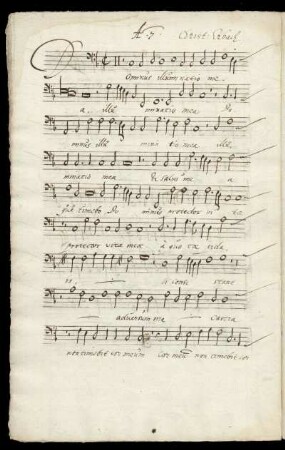 A 7
Dominus illuminatio me
a illu minatio mea Do
minus illu mina tio mea illu
minatio mea & salus me a
quem timebo Do minus protector vi tæ
protector vitæ meæ a quo tre pida
bo si consi stant
adversum me Castra
non timebit cor meum cor meum non timebit cor